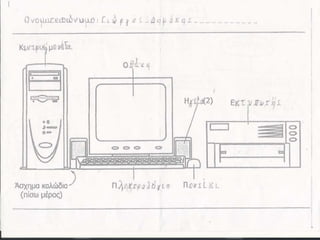 Ονοματεπώνυμο: Γιώργος Δημάκης
Κεντρική μονάδα
Οθόνη
Ηχεία (2)
Εκτυπωτής
Άσχημα καλώδια
(πίσω μέρος)
Πληκτρολόγιο
Ποντίκι